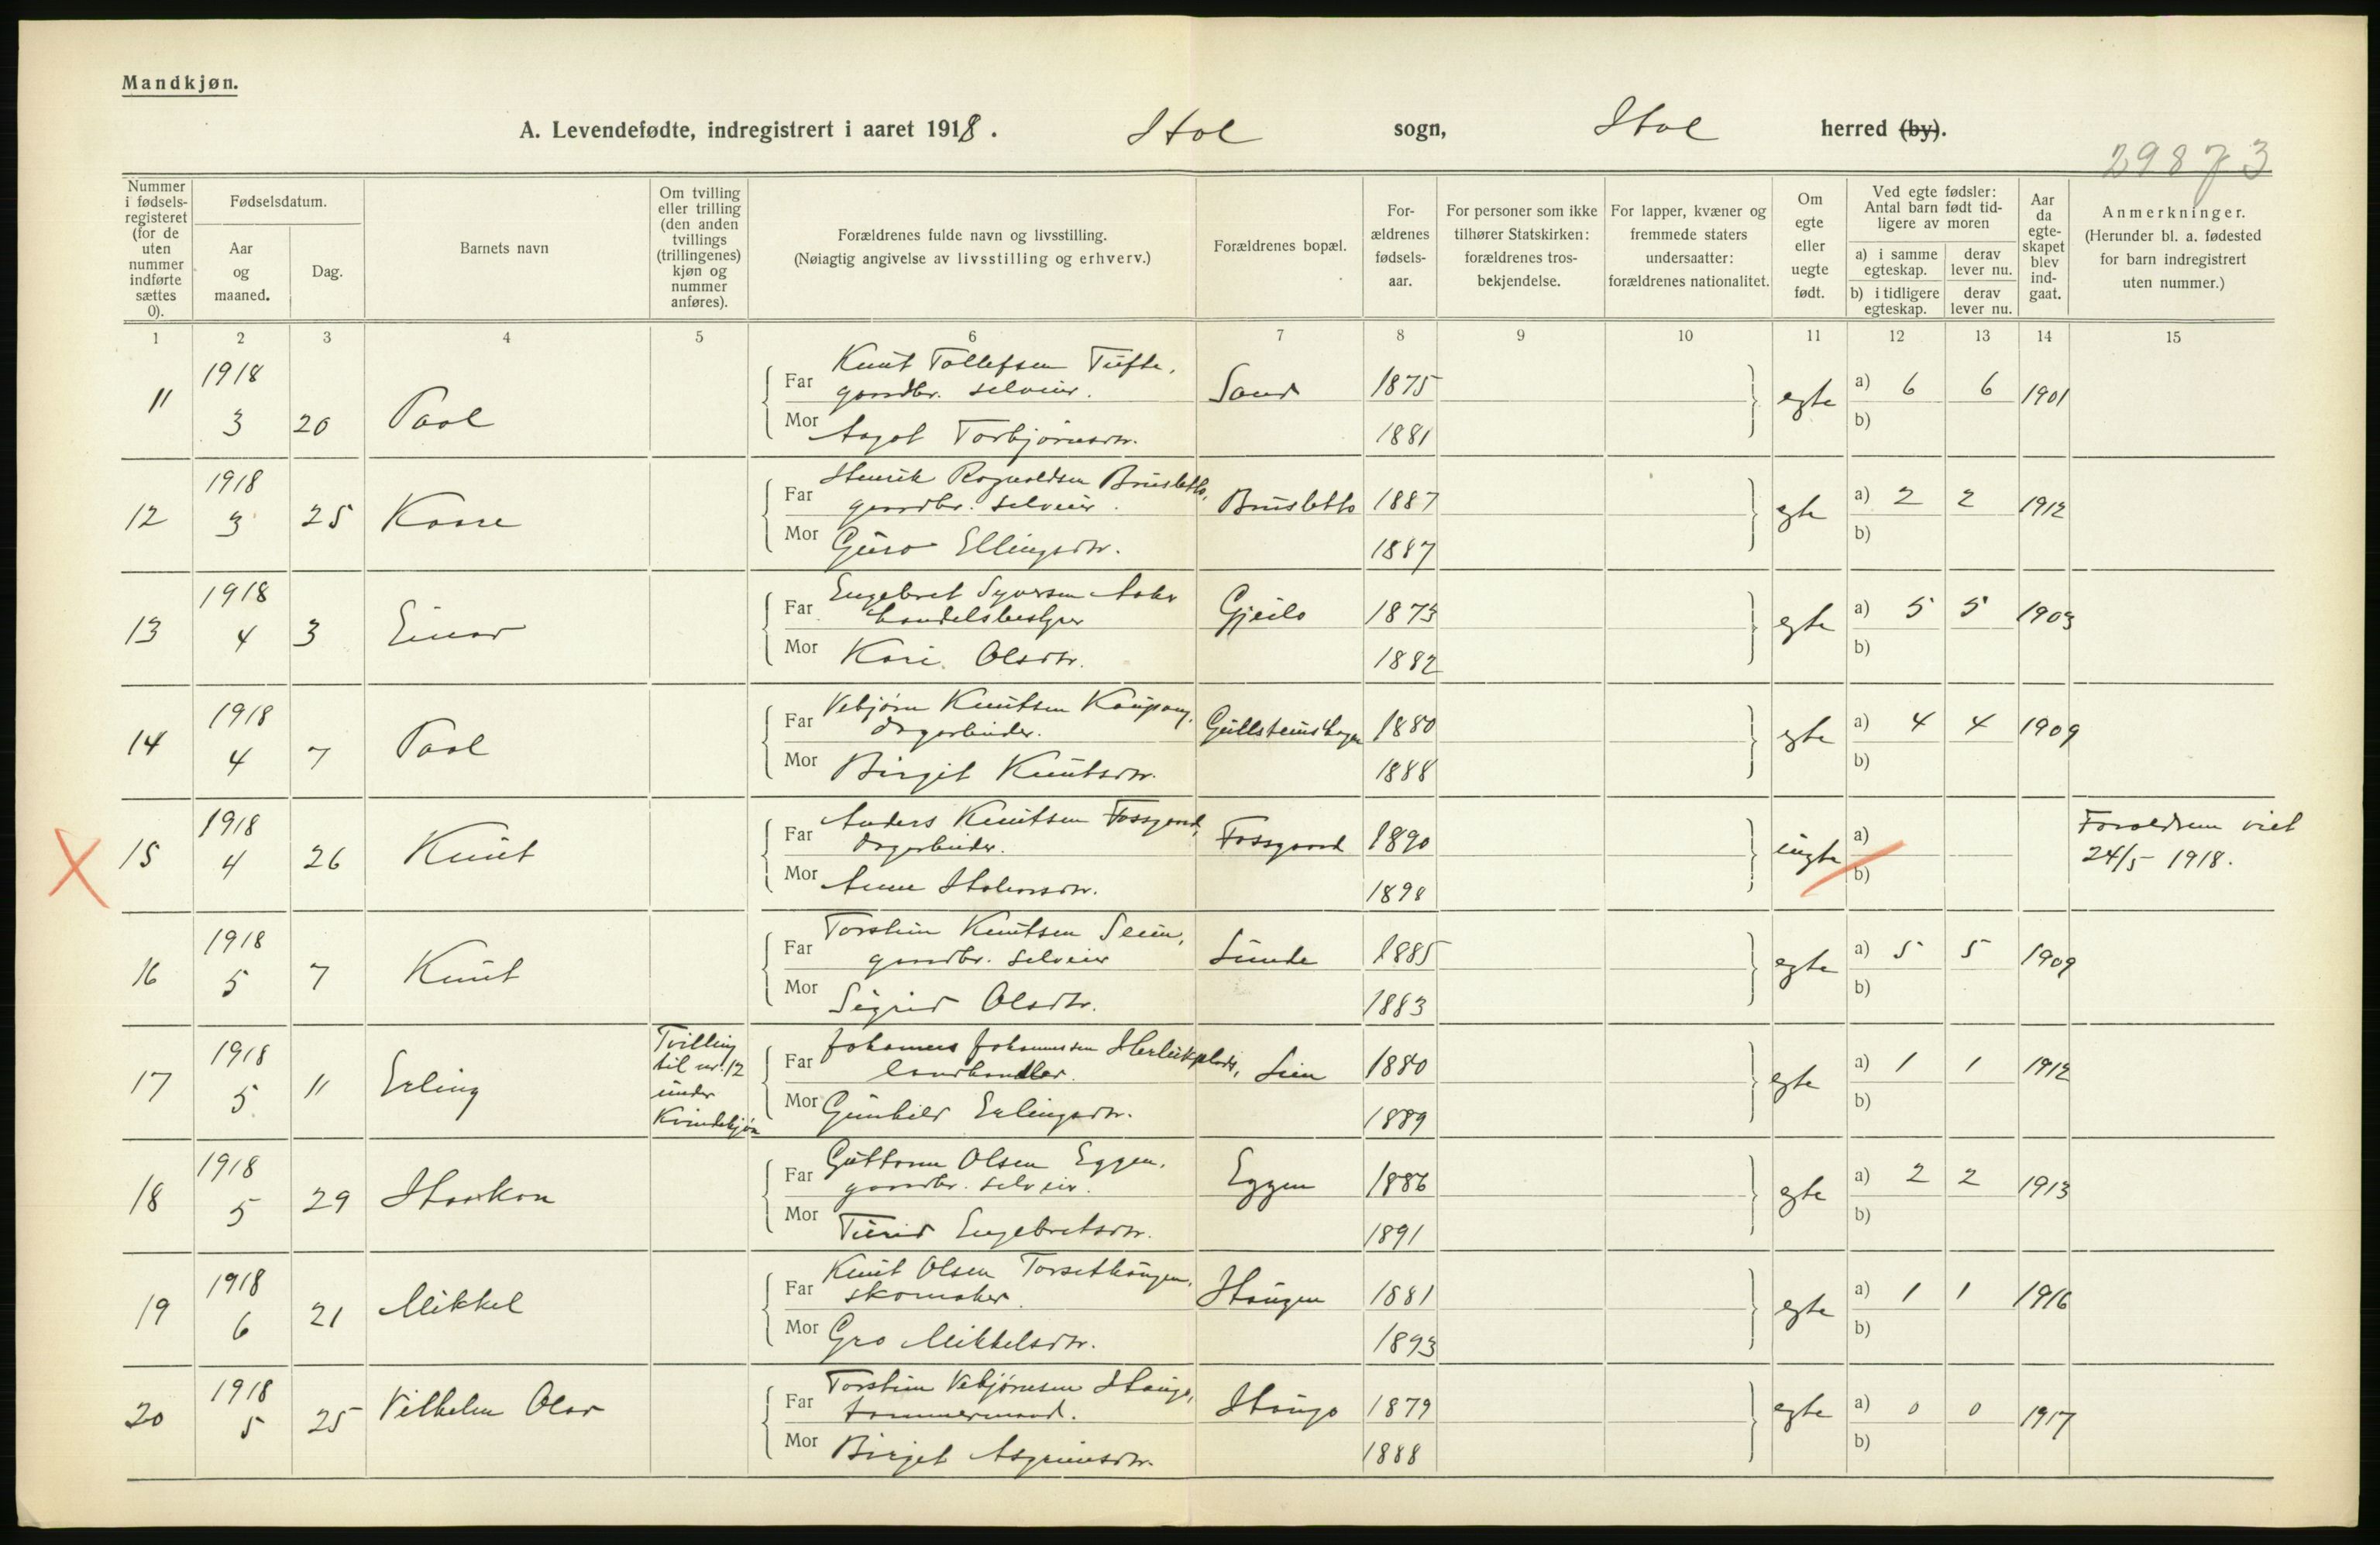 Mandkjøn.
A. Levendefødte, indregistrert i aaret 1918. Hol sogn, Hol herred (by).
29873
Nummer i fødselsregisteret (for de uten nummer indførte sættes 0).
Fødselsdatum.
Aar og maaned.
Dag.
Barnets navn
Om tvilling eller trilling (den anden tvillings (trillingenes) kjøn og nummer anføres).
Forældrenes fulde navn og livsstilling.
(Nøiagtig angivelse av livsstilling og erhverv.)
Forældrenes bopæl.
Forældrenes fødselsaar.
For personer som ikke tilhører Statskirken: forældrenes trosbekjendelse.
For lapper, kvæner og fremmede staters undersaatter: forældrenes nationalitet.
Om egte eller uegte født.
Ved egte fødsler: Antal barn født tidligere av moren
a) i samme egteskap. derav lever nu.
b) i tidligere egteskap. derav lever nu.
Aar da egteskapet blev indgaat.
Anmerkninger.
(Herunder bl. a. fødested for barn indregistrert uten nummer.)
1 2 3 4 5 6 7 8 9 10 11 12 13 14 15
1918 Far Knut Tollefsen Tufte,
11 gaardbr. selveier. Sand 1875 egte a) 6 6 1901
3 20 Paal Mor Aagot Torbjørnsdtr. 1881 b)
1918 Far Henrik Ragnvaldsen Brusletto,
12 3 25 Kaare gaardbr. selveier. Brusletto 1887 egte a) 2 2 1912
Mor Guro Ellingsdtr. 1887 b)
1918 Far Engebret Syversen Aaker
13 4 3 Einar handelsbestyrer Gjeilo 1873 egte a) 5 5 1903
Mor Kari Olsdtr. 1882 b)
1918 Far Vebjørn Knutsen Kaupang,
14 4 7 Paal dagarbeider. Gullsteinshagen 1880 egte a) 4 4 1909
Mor Birgit Knutsdtr. 1888 b)
1918 Far Anders Knutsen Fossgaard,
15 4 26 Knut dagarbeider. Fossgaard 1890 uegte a) Forældrene viet
Mor Anne Halvorsdtr. 1898 b) 24/5 1918.
1918 Far Torstein Knutsen Seim,
16 5 7 Knut gaardbr. selveier Sunde 1885 egte a) 5 5 1909
Mor Sigrid Olsdtr. 1883 b)
1918 Tvilling Far Johannes Johannessen Herleiksplads,
17 5 11 Erling til nr. 12 landhandler. Lien 1880 egte a) 1 1 1912
under
Kvindekjøn Mor Gunhild Erlingsdtr. 1889 b)
1918 Far Guttorm Olsen Eggen,
18 5 29 Haakon gaardbr. selveier. Eggen 1886 egte a) 2 2 1913
Mor Turid Engebretsdtr. 1891 b)
1918 Far Knut Olsen Torsethaugen,
19 6 21 Mikkel skomaker. Haugen 1881 egte a) 1 1 1916
Mor Gro Mikkelsdtr. 1893 b)
1918 Far Torstein Vebjørnsen Hauge,
20 5 25 Vilhelm Olav tømmermand. Haugo 1879 egte a) 0 0 1917
Mor Birgit Asgrimsdtr. 1888 b)